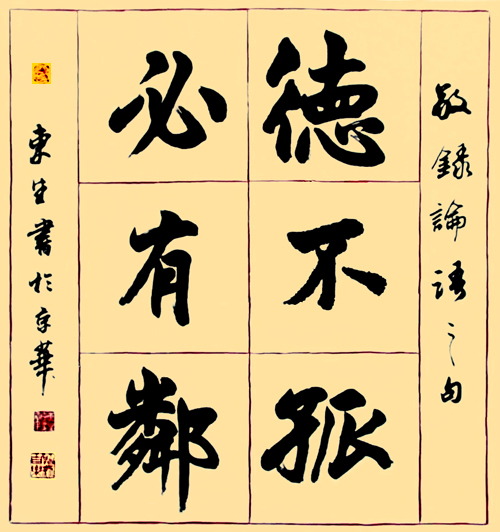 敬録論語之句
德不孤
必有鄰
東生書於京華